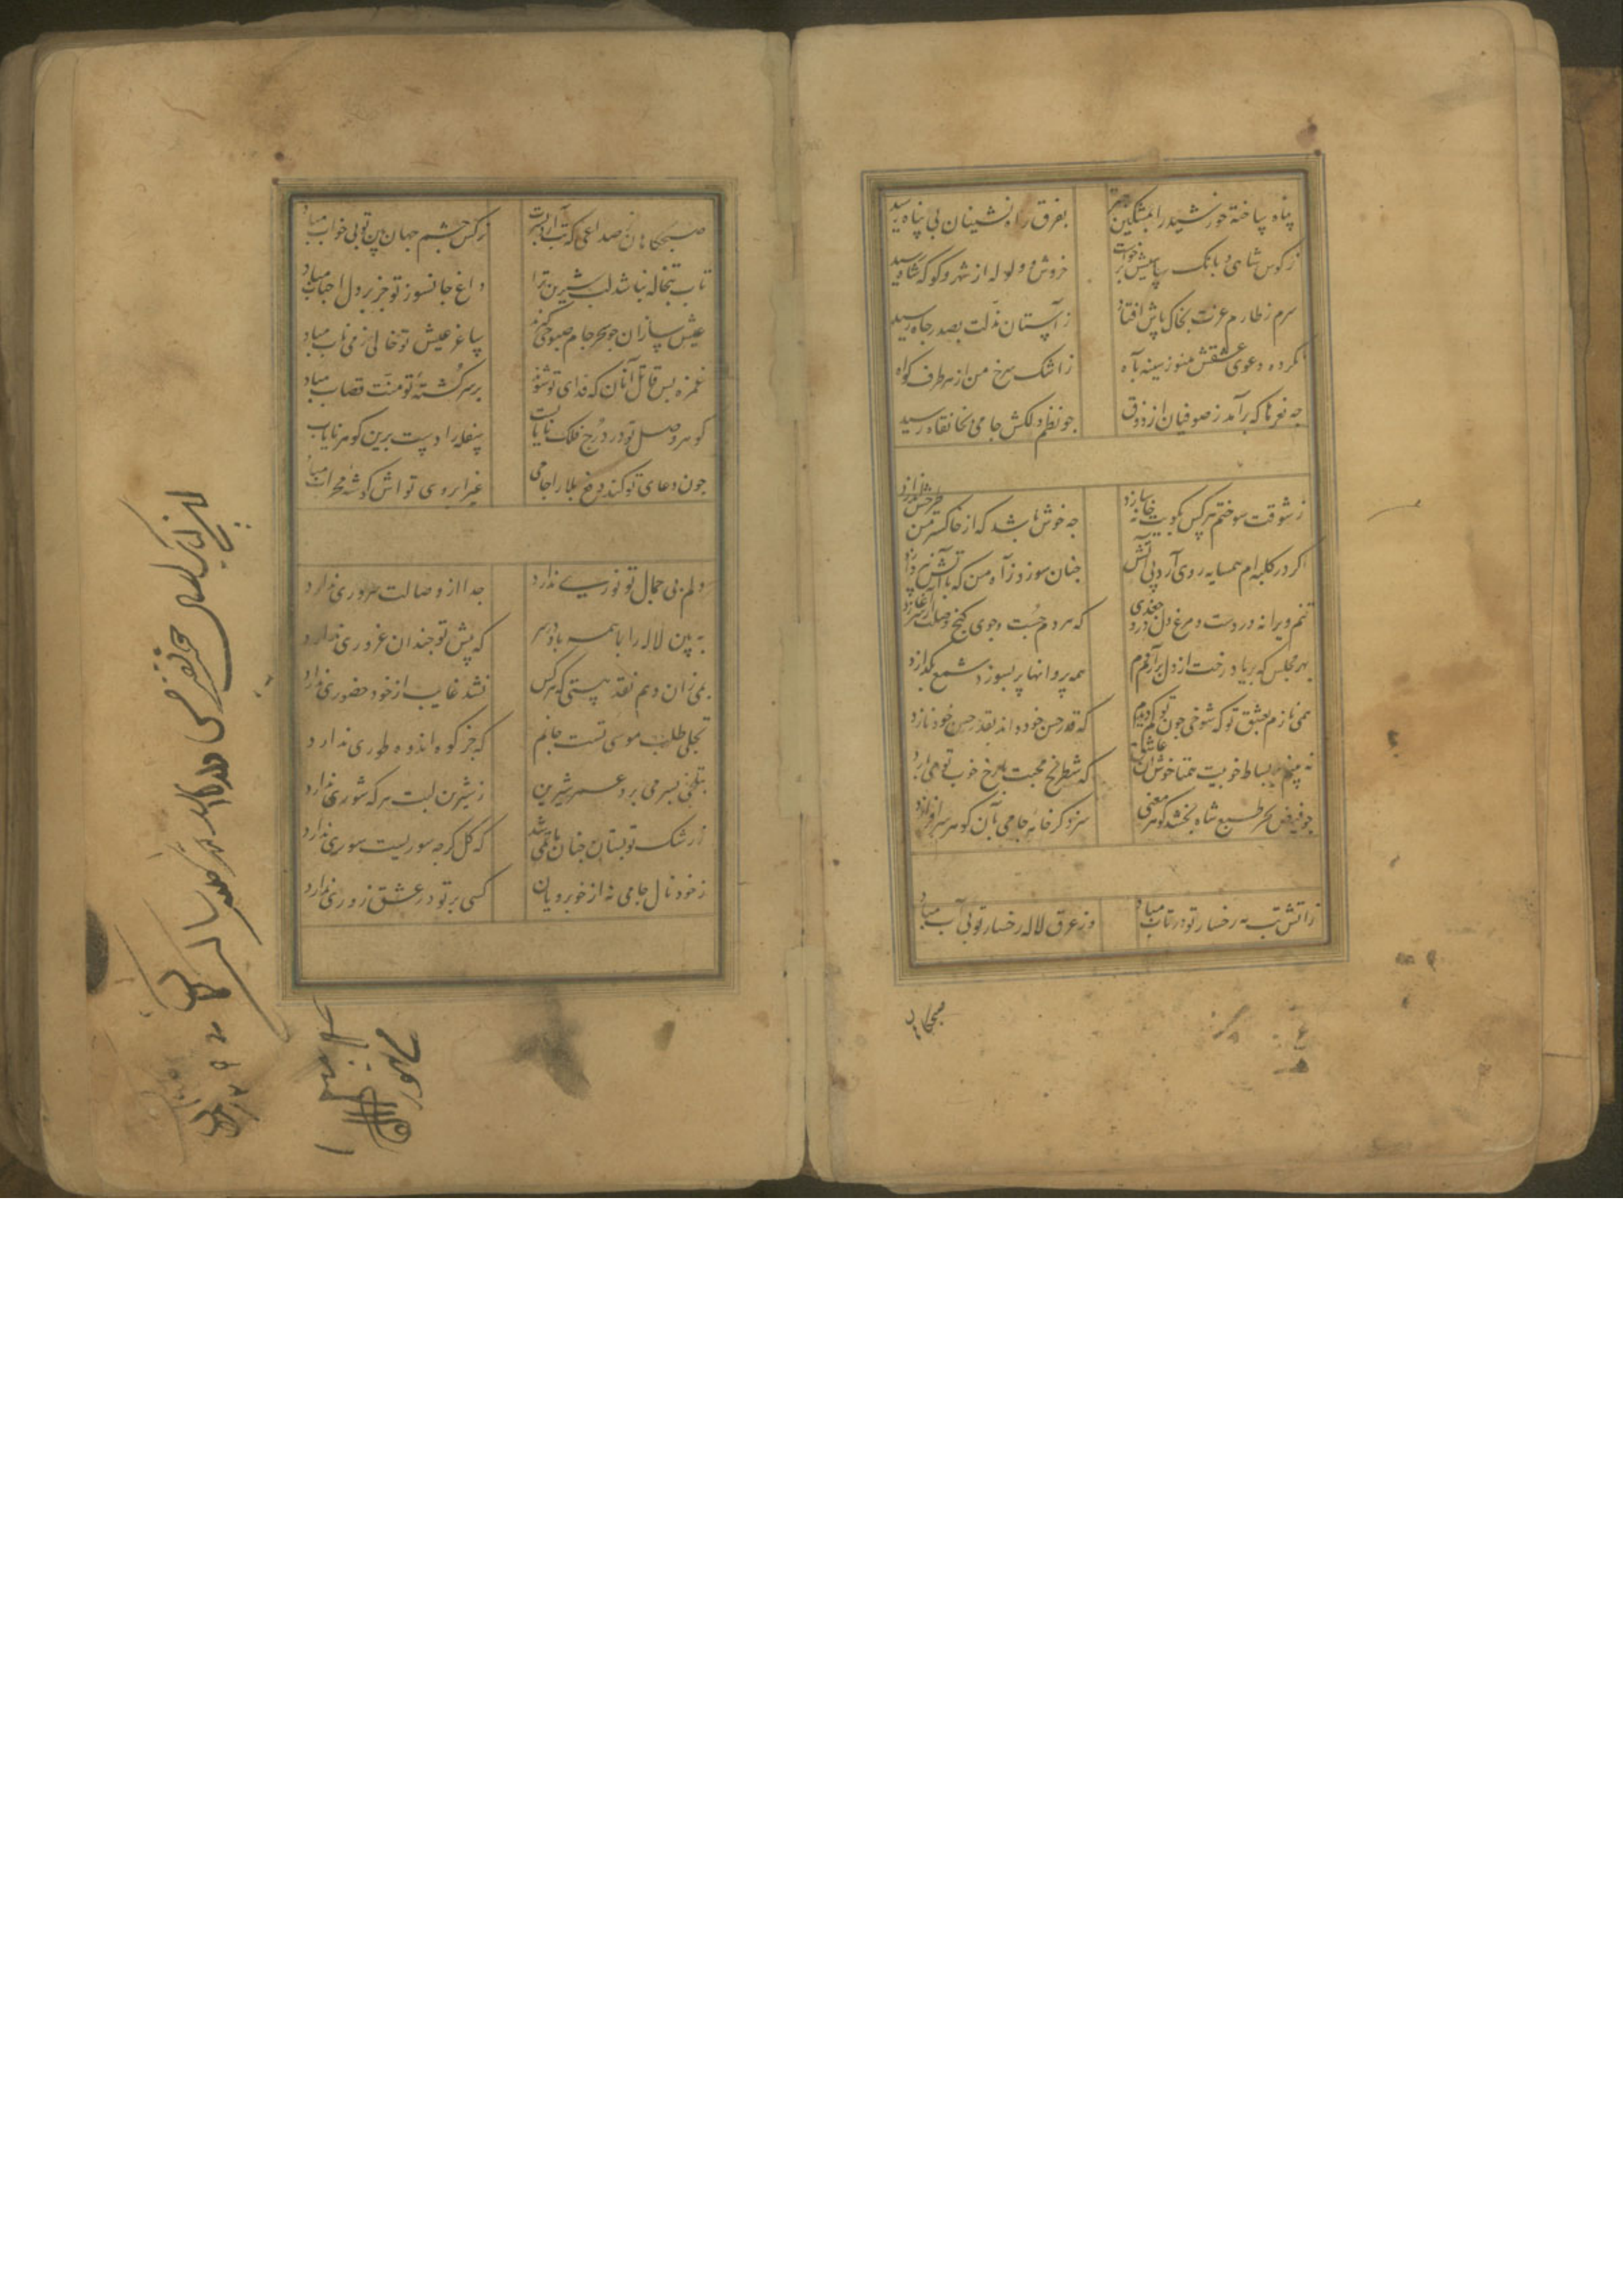 پناه ساخته خورشید را بمشکین چتر بفرق راه نشینان بی پناه رسید
ز کوس شاهی و بانک سپاهیش برخواست خروش و ولوله از شهر و کو که شاه رسید
سرم ز طارم عزت بخاک پاش افتاد ز آستان مذلت بصدر جاه رسید
نکرده دعوی عشقش هنوز سینه بآه ز اشک سرخ من از هر طرف کواه رسید
چه نعرها که برآمد ز صوفیان از ذوق جو نظم دلکش جامی بخانقاه رسید
ز شوقت سوختم هر کس بکویت خانه سازد چه خوش باشد که از خاکستر من طرحش اندازد
اکر در کلبه ام همسایه روی آرد پی آتش جنان سوزد ز آه من که با آتش نپردازد
تنم ویرانه دردست و مرغ دل درو جغدی که هر دم جست و جوی کنج وصلت را سر آغازد
بهر مجلس که بر یاد رخت از دل برآرم دم همه پروانها پر بسوزد شمع بکدازد
همی نازم بعشق تو که شوخی جون تو کم دیدم که قدر حسن خود داند بقدر حسن خود نازد
نه بینم بر بساط خوبیت جمتا خوش آن عاشق که شطرنج محبت با رخ خوب تو می بازد
جو فیض بحر طبع شاه بخشد کوهر معنی سزد کر خامه جامی بآن کوهر سر افرازد
ز آتش تب مه رخسار تو در تاب مباد وز عرق لاله رخسار تو بی آب مباد
صبحکاهان
صبحکاهان ز صداعی که تب آرد بسرت نرکس چشم جهان بین تو بی خواب مباد
تاب تبخاله نباشد لب شیرین ترا داغ جانسوز تو جز بر دل احباب مباد
عیش سازان جو سحر جام صبوحی کیرند ساغر عیش تو خالی ز می ناب مباد
غمزه بس قاتل آنان که فدای تو شوند بر سر کشته تو منت قصاب مباد
کوهر وصل تو در درج فلک نایابست سفله را دست برین کوهر نایاب مباد
جون دعای تو کند دفع بلا را جامی غیر ابروی تو اش کوشه محراب مباد
دلم بی جمال تو نوری ندارد جدا از وصالت سروری ندارد
به بین لاله را با همه باد در سر که پیش تو جندان غروری ندارد
بمی زان دهم نقد هستی که هرکس نشد غایب از خود حضوری ندارد
تجلی طلب موسی تست جانم که جز کوه اندوه طوری ندارد
بتلخی بسر می برد عمر شیرین ز شیرین لبت هر که شوری ندارد
ز رشک تو بستان جنان ماتمی شد که کل کرجه سوریست سوری ندارد
ز خود نال جامی نه از خوبرویان کسی بر تو در عشق زوری ندارد